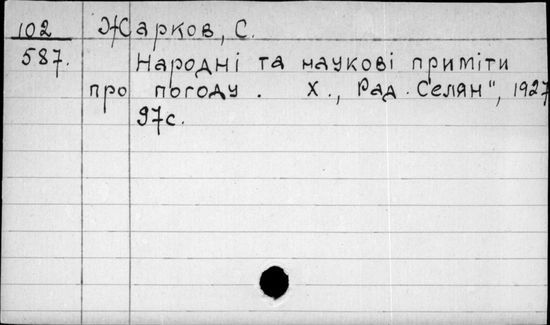 102 Жарков, С.
587. Народні та наукові приміти
про погоду. Х., Рад. Селян", 1927
97с.